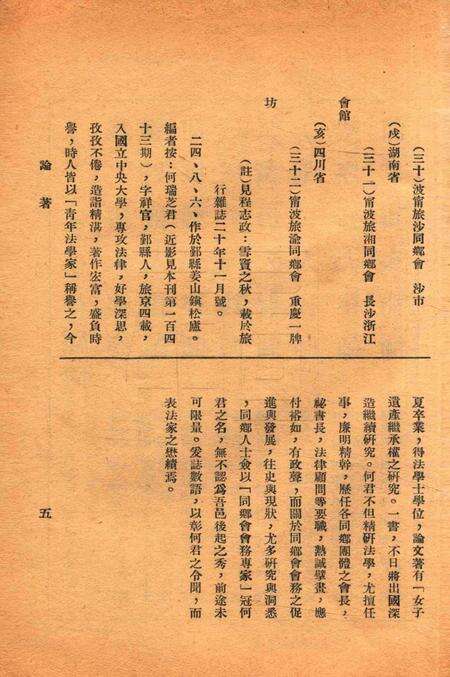 (三十)波甯旅沙同鄉會　沙市
(戌)湖南省
(三十一)甯波旅湘同鄉會　長沙浙江
會館
(亥)四川省
(三十二)甯波旅渝同鄉會　重慶一牌
坊
(註)見程志政：雪竇之秋，載於旅
行雜誌二十年十一月號。
二四、八、六、作於鄞縣姜山鎮松廬。
編者按：何瑞芝君(近影見本刊第一百四
十三期)，字祥官，鄞縣人，旅京四載，
入國立中央大學，專攻法律，好學深思，
孜孜不倦，造詣精湛，著作宏富，盛負時
譽，時人皆以「青年法學家」稱譽之，今
論著
夏卒業，得法學士學位，論文著有「女子
遺產繼承權之研究。一書，不日將出國深
造繼續研究。何君不但精研法學，尤擅任
事，廉明精幹，歷任各同鄉團體之會長，
祕書長，法律顧問等要職，熱誠擘畫，應
付裕如，有政聲，而關於同鄉會會務之促
進與發展，往史與現狀，尤多研究與洞悉
，同鄉人士僉以「同鄉會會務專家」冠何
君之名，無不認爲吾邑後起之秀，前途未
可限量。爰誌數語，以彰何君之令聞，而
表法家之懋績焉。
五